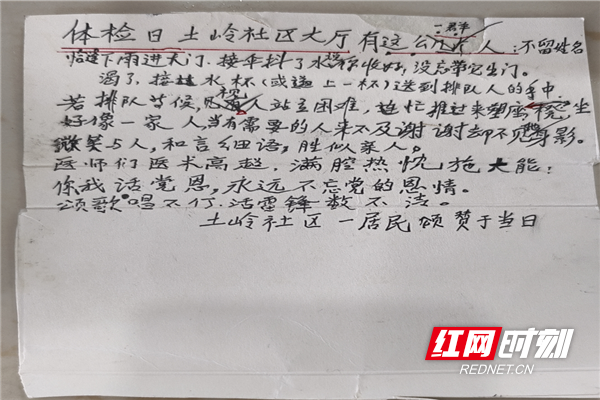 体检日土岭社区大厅有这一群人:不留姓名
恰逢下雨进大门.接伞抖了水收好,没忘带它出门.
渴了.接过水杯(或递上一杯)送到排队人的手中.
若排队等候,见人站立困难,连忙推过来塑凳坐
好像一家人,当有需要的人来不及谢谢却不见身影。
微笑与人,和言细语,胜似亲人。
医师们医术高超.满腔热忱施大能;
你我话党恩,永远不忘党的恩情。
颂歌唱不停.活雷锋数不清。
土岭社区一居民颂赞于当日
红网时刻
REDNET.CN